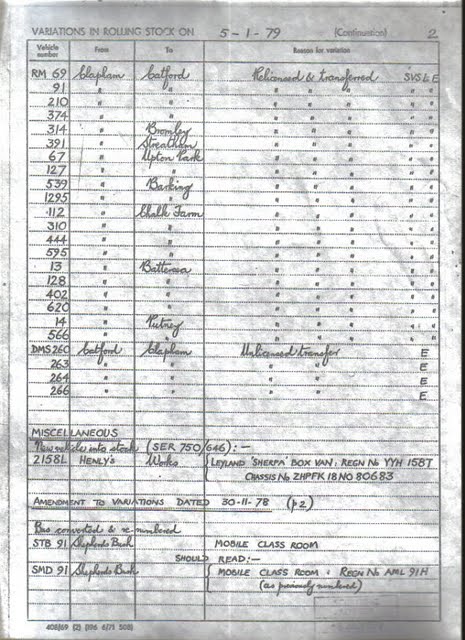 VARIATIONS IN ROLLING STOCK ON 5-1-79 (Continuation) 2
Vehicle number From To Reason for variation
RM 69 Clapham Catford Relicensed & transferred SVS L E
91 " " " " " " "
210 " " " " " " "
374 " " " " " " "
314 " Bromley " " " " "
391 " Streatham " " " " "
67 " Upton Park " " " " "
127 " " " " " " "
539 " Barking " " " " "
1295 " " " " " " "
112 " Chalk Farm " " " " "
310 " " " " " " "
444 " " " " " " "
595 " " " " " " "
13 " Battersea " " " " "
128 " " " " " " "
402 " " " " " " "
620 " " " " " " "
14 " Putney " " " " "
566 " " " " " " "
DMS 260 Catford Clapham Unlicensed transfer E
263 " " " " E
264 " " " " E
266 " " " " E
MISCELLANEOUS
New vehicle into stock (SER 750/646) :-
2158L HENLY'S Works LEYLAND 'SHERPA' BOX VAN: REGN No YYH 158T
CHASSIS No ZHPFK 18 NO 80683
AMENDMENT TO VARIATIONS DATED 30-11-78 (p2)
Bus converted & re-numbered
STB 91 Shepherds Bush MOBILE CLASS ROOM
SHOULD READ:-
SMD 91 Shepherds Bush MOBILE CLASS ROOM : REGN No AML 91H
(as previously numbered)
408/69 (2) (196 6/71 50B)